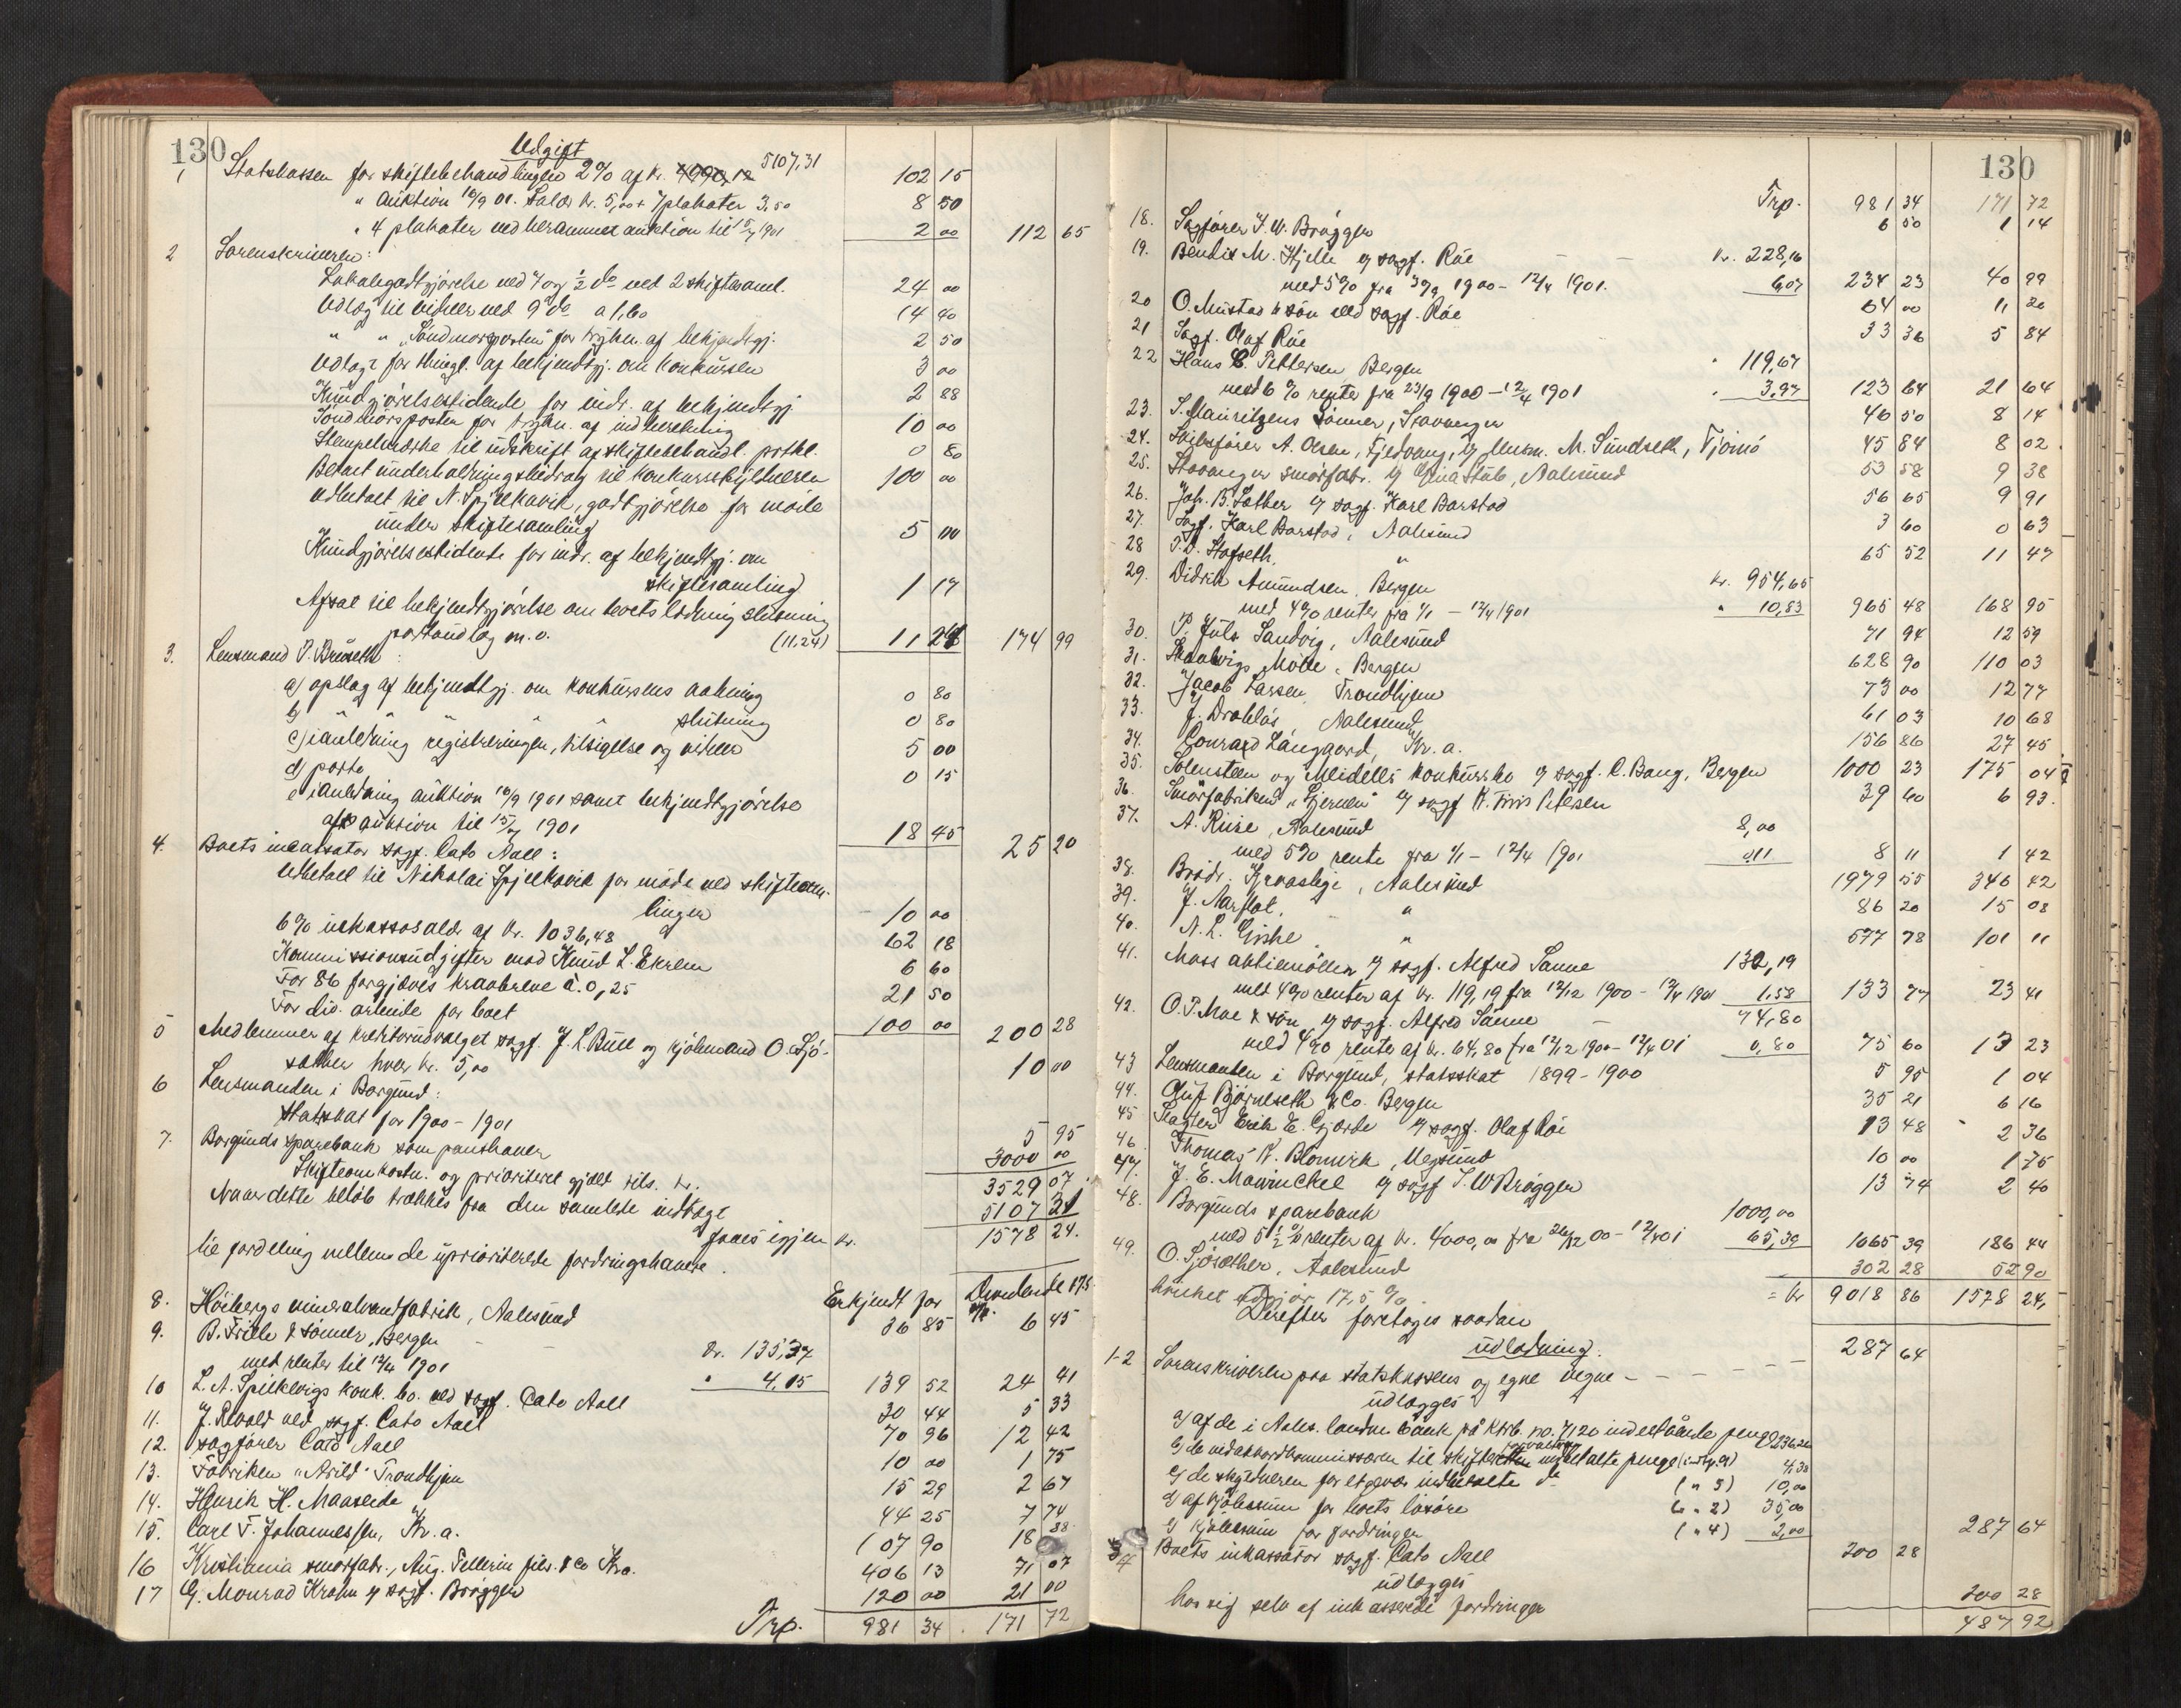 130
Udgift
1 Statskassen for skiftebehandlingen 2% af kr. 4990,12 5107,31 102 15
" Auktion 16/9 01. Salær kr. 5,00 + 7 plakater 3,50 8 50
" 4 plakater ved berammet auktion til 15/7 1901 2 00 112 65
2 Sorenskriveren:
Lokalegodtgjørelse ved 7 og 1/2 do ved 2 skiftesaml. 24 00
Udlæg til vidner ved 9 do a 1,60 14 40
" " "Söndmörsposten" for trykn. af bekjendtgj. 2 50
Udlagt for thingl. af bekjendtgj. om konkursen 3 00
Kundgjörelsestidende for indr. af bekjendtgj. 2 88
Söndmörsposten for trykn. af indberetning 10 00
Stempelmærke til udskrift af skiftebehandl. prtkl. 0 80
Betalt underholdningsbidrag til konkursskyldneren 100 00
Udbetalt til N. Spjelkavik, godtgjörelse for möde
under skiftesamling 5 00
Kundgjörelsestidende for indr. af bekjendtgj. om
skiftesamling 1 17
Afsat til bekjendtgjörelse om boets lodning slutning
portoudlæg m.v. (11,24) 11 24 174 99
3. Lensmand P. Bruseth:
a) opslag af bekjendtgj. om konkursens aabning 0 80
b) " " " " " slutning 0 80
c) i anledning registreringen, tilsigelse og vidner 5 00
d) porto 0 15
e i anledning auktion 16/9 1901 samt bekjendtgjörelse
af auktion til 15/7 1901 18 45 25 20
4. Boets incassator sagf. Cato Aall:
Udbetalt til Nikolai Spjelkavik for möde ved skiftesam-
lingen 10 00
6% inkassosalær af kr. 1036,48 62 18
Kommissionsudgifter mod Knud L. Ekrem 6 60
For 86 forgjæves kravbreve à 0,25 21 50
For div. arbeide for boet 100 00 200 28
5 Medlemmer af kreditorudvalget sagf. J. L. Bull og kjöbmand O. Sjö-
sæther hver kr. 5,00 10 00
6 Lensmanden i Borgund:
Statsskat for 1900-1901 5 95
7. Borgunds sparebank som panthaver 3000 00
Skifteomkostn. og prioriteret gjæld tils. kr. 3529 07
Naar dette belöb trækkes fra den samlede indtægt 5107 31
faaes igjen kr. 1578 24.
til fordeling mellem de uprioriterede fordringshavere.
Erkjendt for Dividende 17,5 %
8. Höibergs mineralvandfabrik, Aalesund 36 85 6 45
9. B. Friele & sönner, Bergen kr. 135,37
med renter til 12/4 1901 " 4,15 139 52 24 41
10 L. A. Spilkevigs konk. bo. ved sagf. Cato Aall 30 44 5 33
11. J. Rivold ved sagf. Cato Aall 70 96 12 42
12. sagförer Cato Aall 10 00 1 75
13. Fabriken "Arild" Trondhjem 15 29 2 67
14. Henrik H. Maaseide 44 25 7 74
15. Carl F. Johannessen, Kr. a. 107 90 18 88
16 Kristiania smörfabr., Aug. Pellerin fils. & Co Kra. 406 13 71 07
17 G. Monrad Krohn v/ sagf. Bröggen 120 00 21 00
Trp. 981 34 171 72
130
Trp. 981 34 171 72
18. Sagförer J. W. Bröggen 6 50 1 14
19. Bendix M. Hjelle v/ sagf. Röe kr. 228,16
med 5% fra 30/9 1900 - 12/4 1901. 6,07 234 23 40 99
20 O. Mustad & sön ved sagf. Röe 64 00 11 20
21 Sagf. Olaf Röe 33 36 5 84
22 Hans C. Pettersen Bergen " 119,67
med 6% renter fra 23/9 1900 - 12/4 1901 " 3,97 123 64 21 64
23. S. Mauritzens sönner, Stavanger 46 50 8 14
24. Skibsförer A. Olsen, Fjedvang, v/ lensm. M. Sundseth, Tjömö 45 84 8 02
25. Stavanger smörfabr. v/ Stub, Aalesund 53 58 9 38
26. Joh. B. Sæther v/ sagf. Karl Barstad 56 65 9 91
27. Sagf. Karl Barstad, Aalesund 3 60 0 63
28 P. O. Stafseth, " 65 52 11 47
29. Didrik Amundsen, Bergen kr. 954,65
med 4% renter fra 1/1 - 12/4 1901 " 10,83 965 48 168 95
30. P. Juls Sandvig, Aalesund 71 94 12 59
31. Skaalvigs Mölle, Bergen 628 90 110 03
32. Jacob Larsen, Trondhjem 73 00 12 77
33. J. Drabløs, Aalesund 61 03 10 68
34. Conrad Langgaard, Kr. a. 156 86 27 45
35. Solensteen og Meidells konkursbo v/ sagf. C. Bang, Bergen 1000 23 175 04
36. Smörfabriken "Stjernen" v/ sagf. K. Friis Petersen 39 60 6 93.
37. A. Riise, Aalesund 8,00
med 5% rente fra 1/1 - 12/4 1901 0,11 8 11 1 42
38. Brödr. Kjervaslige, Aalesund 1979 55 346 42
39. J. Aarflot, " 86 20 15 08
40. N. L. Giske " 577 78 101 11
41. Moss aktiemöllen v/ sagf. Alfred Sanne 132,19
med 4% renter af kr. 119,19 fra 12/12 1900 - 12/4 1901 1,58 133 77 23 41
42. O. P. Moe & sön v/ sagf. Alfred Sanne 74,80
med 4% renter af kr. 64,80 fra 12/12 1900 - 12/4 01 0,80 75 60 13 23
43 Lensmanden i Borgund, statsskat 1899-1900 5 95 1 04
44. Guf Björneseth & Co. Bergen 35 21 6 16
45 Slagter Erik E. Gjærde v/ sagf. Olaf Röe 13 48 2 36
46 Thomas K. Blomvik, Ulvesund 10 00 1 75
47. J. E. Mowinckel v/ sagf. J. W. Bröggen 13 74 2 40
48. Borgunds sparebank 1000,00
med 5 1/2 % renter af kr. 4000,00 fra 26/12 00 - 12/4 01 65,39 1065 39 186 44
49. O. Sjösæther, Aalesund 302 28 52 90
hvilket udgjör 17,5 % = kr 9018 86 1578 24,
Derefter foretages saadan
udlodning.
1-2 Sorenskriveren paa statskassens og egne vegne - - - 287 64
udlægges
a) af de i Aales. landm. bank på ktrb. no. 7120 indestående penge 236,26
b) de ved akkordkommissæren til skifteforvalteren indbetalte penge 4,38
c) de skyldneren for et gevær indbetalte do (" 3) 10,00
d) af kjöbesum for boets lösöre (" 2) 35,00
e) kjöbesum for fordringer (" 4) 2,00 287 64
3 4 Boets inkassator sagf. Cato Aall 200 28
udlægges
hos sig selv af inkasserede fordringer 200 28
487 92